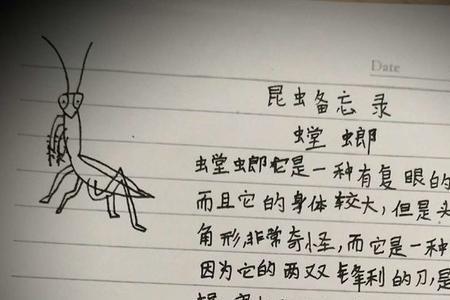 Date
昆虫备忘录
螳螂
螳螂它是一种有复眼的
而且它的身体较大，但是头
角形，非常奇怪，而它是一种
因为它的两双锋利的刀，是